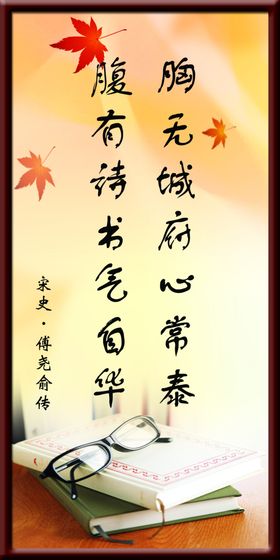 胸无城府心常泰
腹有诗书气自华
宋史·傅尧俞传